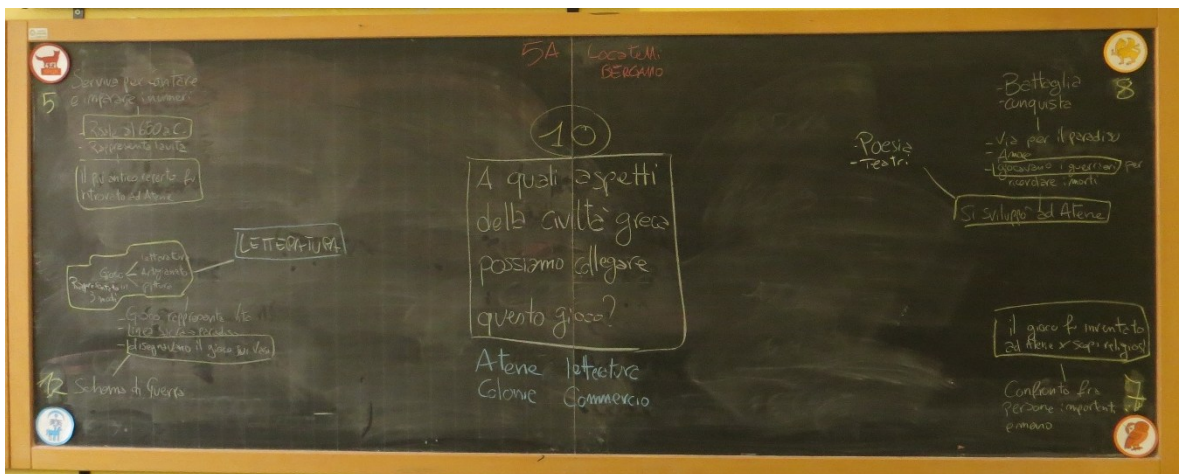 5A Locatelli
BERGAMO
5
Serviva per contare
e imparare i numeri
Risale al 650 a.C.
- Rappresenta la vita
Il più antico reperto fu
ritrovato ad Atene
LETTERATURA
letteratura
Gioco artigianato
pittura
Rappresentato in
3 modi
- Gioco rappresenta vita
- linea sacra = paradiso
- disegnavano il gioco sui vasi
12 Schema di Guerra
10
A quali aspetti
della civiltà greca
possiamo collegare
questo gioco?
Atene letteratura
Colonie Commercio
8
- Battaglia
- conquista
- Via per il paradiso
- giocavano i guerrieri per
ricordare i morti
- Poesia
- Teatri
Si sviluppò ad Atene
il gioco fu inventato
ad Atene x scopi religiosi
7
Confronto fra
persone importanti
e meno